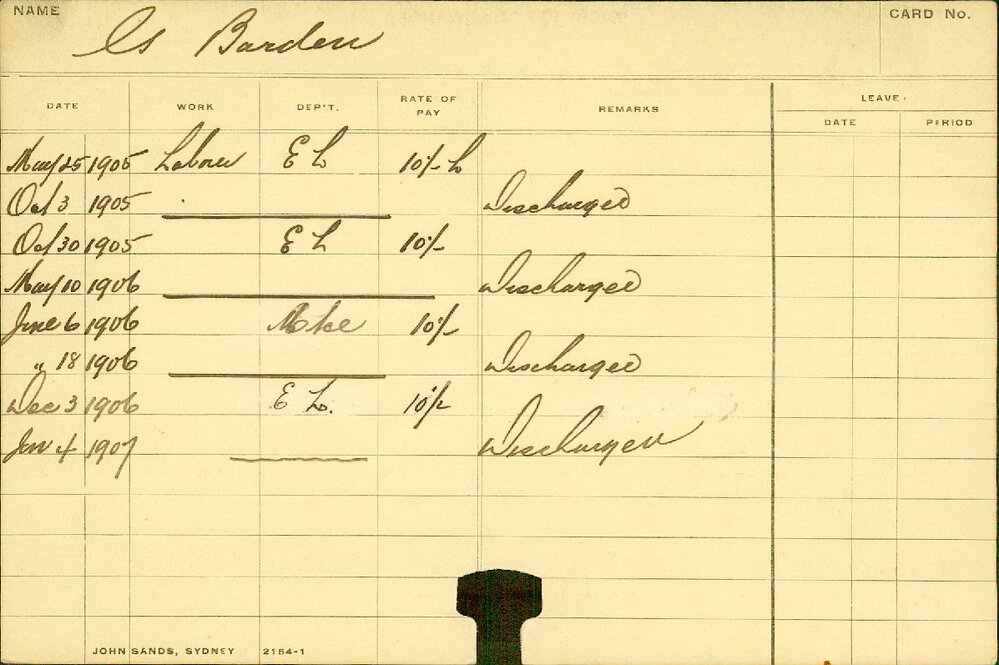 NAME
Barden
CARD No.
DATE WORK DEP'T. RATE OF PAY REMARKS LEAVE. DATE PERIOD
May 25 1905 Laborer E L 10/- L
Oct 3 1905 Discharged
Oct 30 1905 E L 10/-
May 10 1906 Discharged
June 6 1906 10/-
" 18 1906 Discharged
Dec 3 1906 E L. 10/-
Jan 4 1907 Discharged
JOHN SANDS, SYDNEY 2154-1